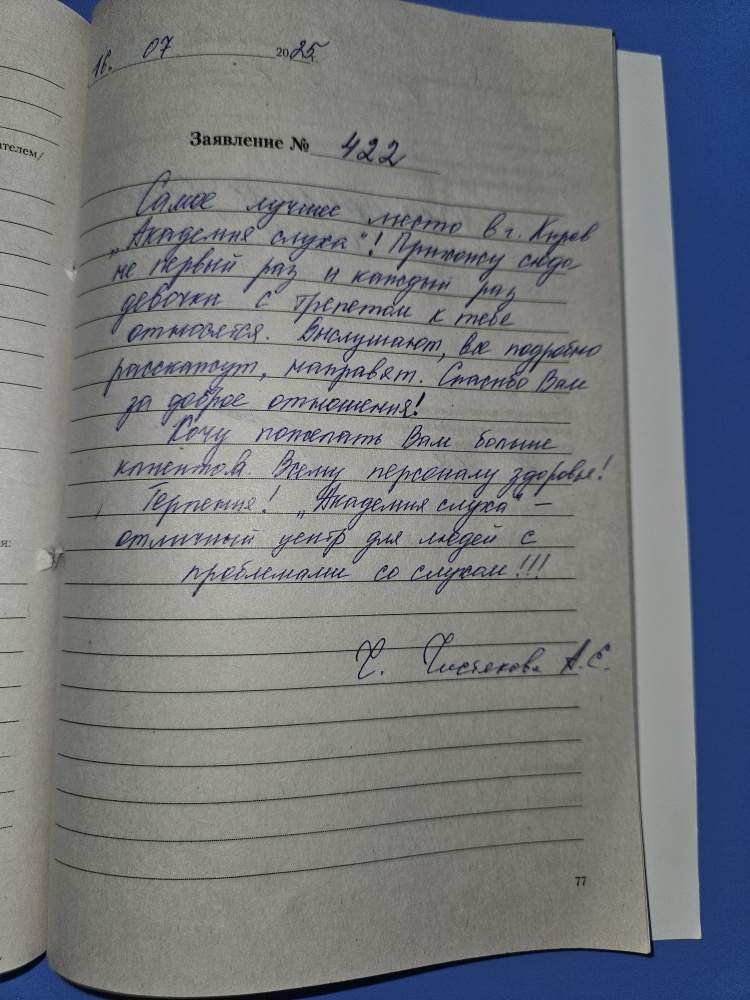 ателем/
я:
16. 07 2025 г.
Заявление № 422
Самое лучшее место в г. Киров
„Академия слуха"! Прихожу сюда
не первый раз и каждый раз
девочки с трепетом к тебе
относятся. Выслушают, все подробно
расскажут, направят. Спасибо Вам
за доброе отношения!
Хочу пожелать Вам больше
клиентов. Всему персоналу здоровья!
Терпения! „Академия слуха" –
отличный центр для людей с
проблемами со слухом!!!
Ч. Чистякова А.Е.
77